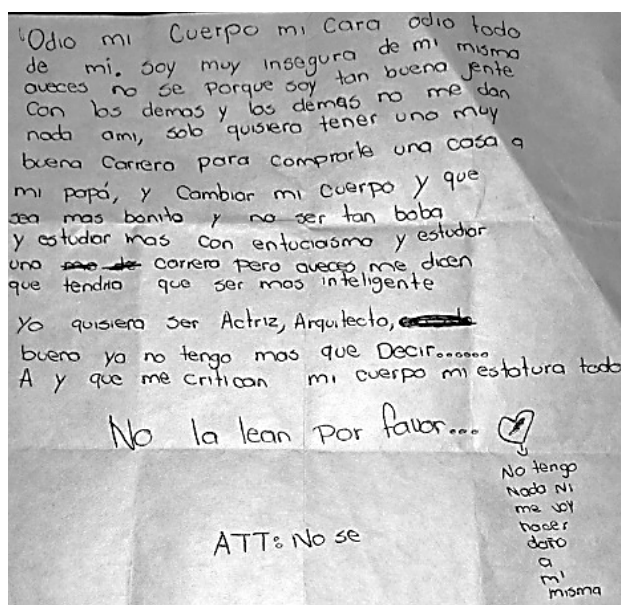 "Odio mi Cuerpo mi Cara odio todo
de mi. soy muy insegura de mi misma
aveces no se porque soy tan buena jente
Con los demas y los demas no me dan
nada ami, solo quisiera tener una muy
buena Carrera para comprarle una casa a
mi papá, y Cambiar mi cuerpo y que
sea mas bonito y no ser tan boba
y estudiar mas con entuciasmo y estudiar
una carrera pero aveces me dicen
que tendria que ser mas inteligente
Yo quisiera ser Actriz, Arquitecto,
bueno ya no tengo mas que Decir......
A y que me critican mi cuerpo mi estatura todo
No la lean Por favor...
No tengo
Nada Ni
me voy
hacer
daño
a
mi
misma
ATT: No se